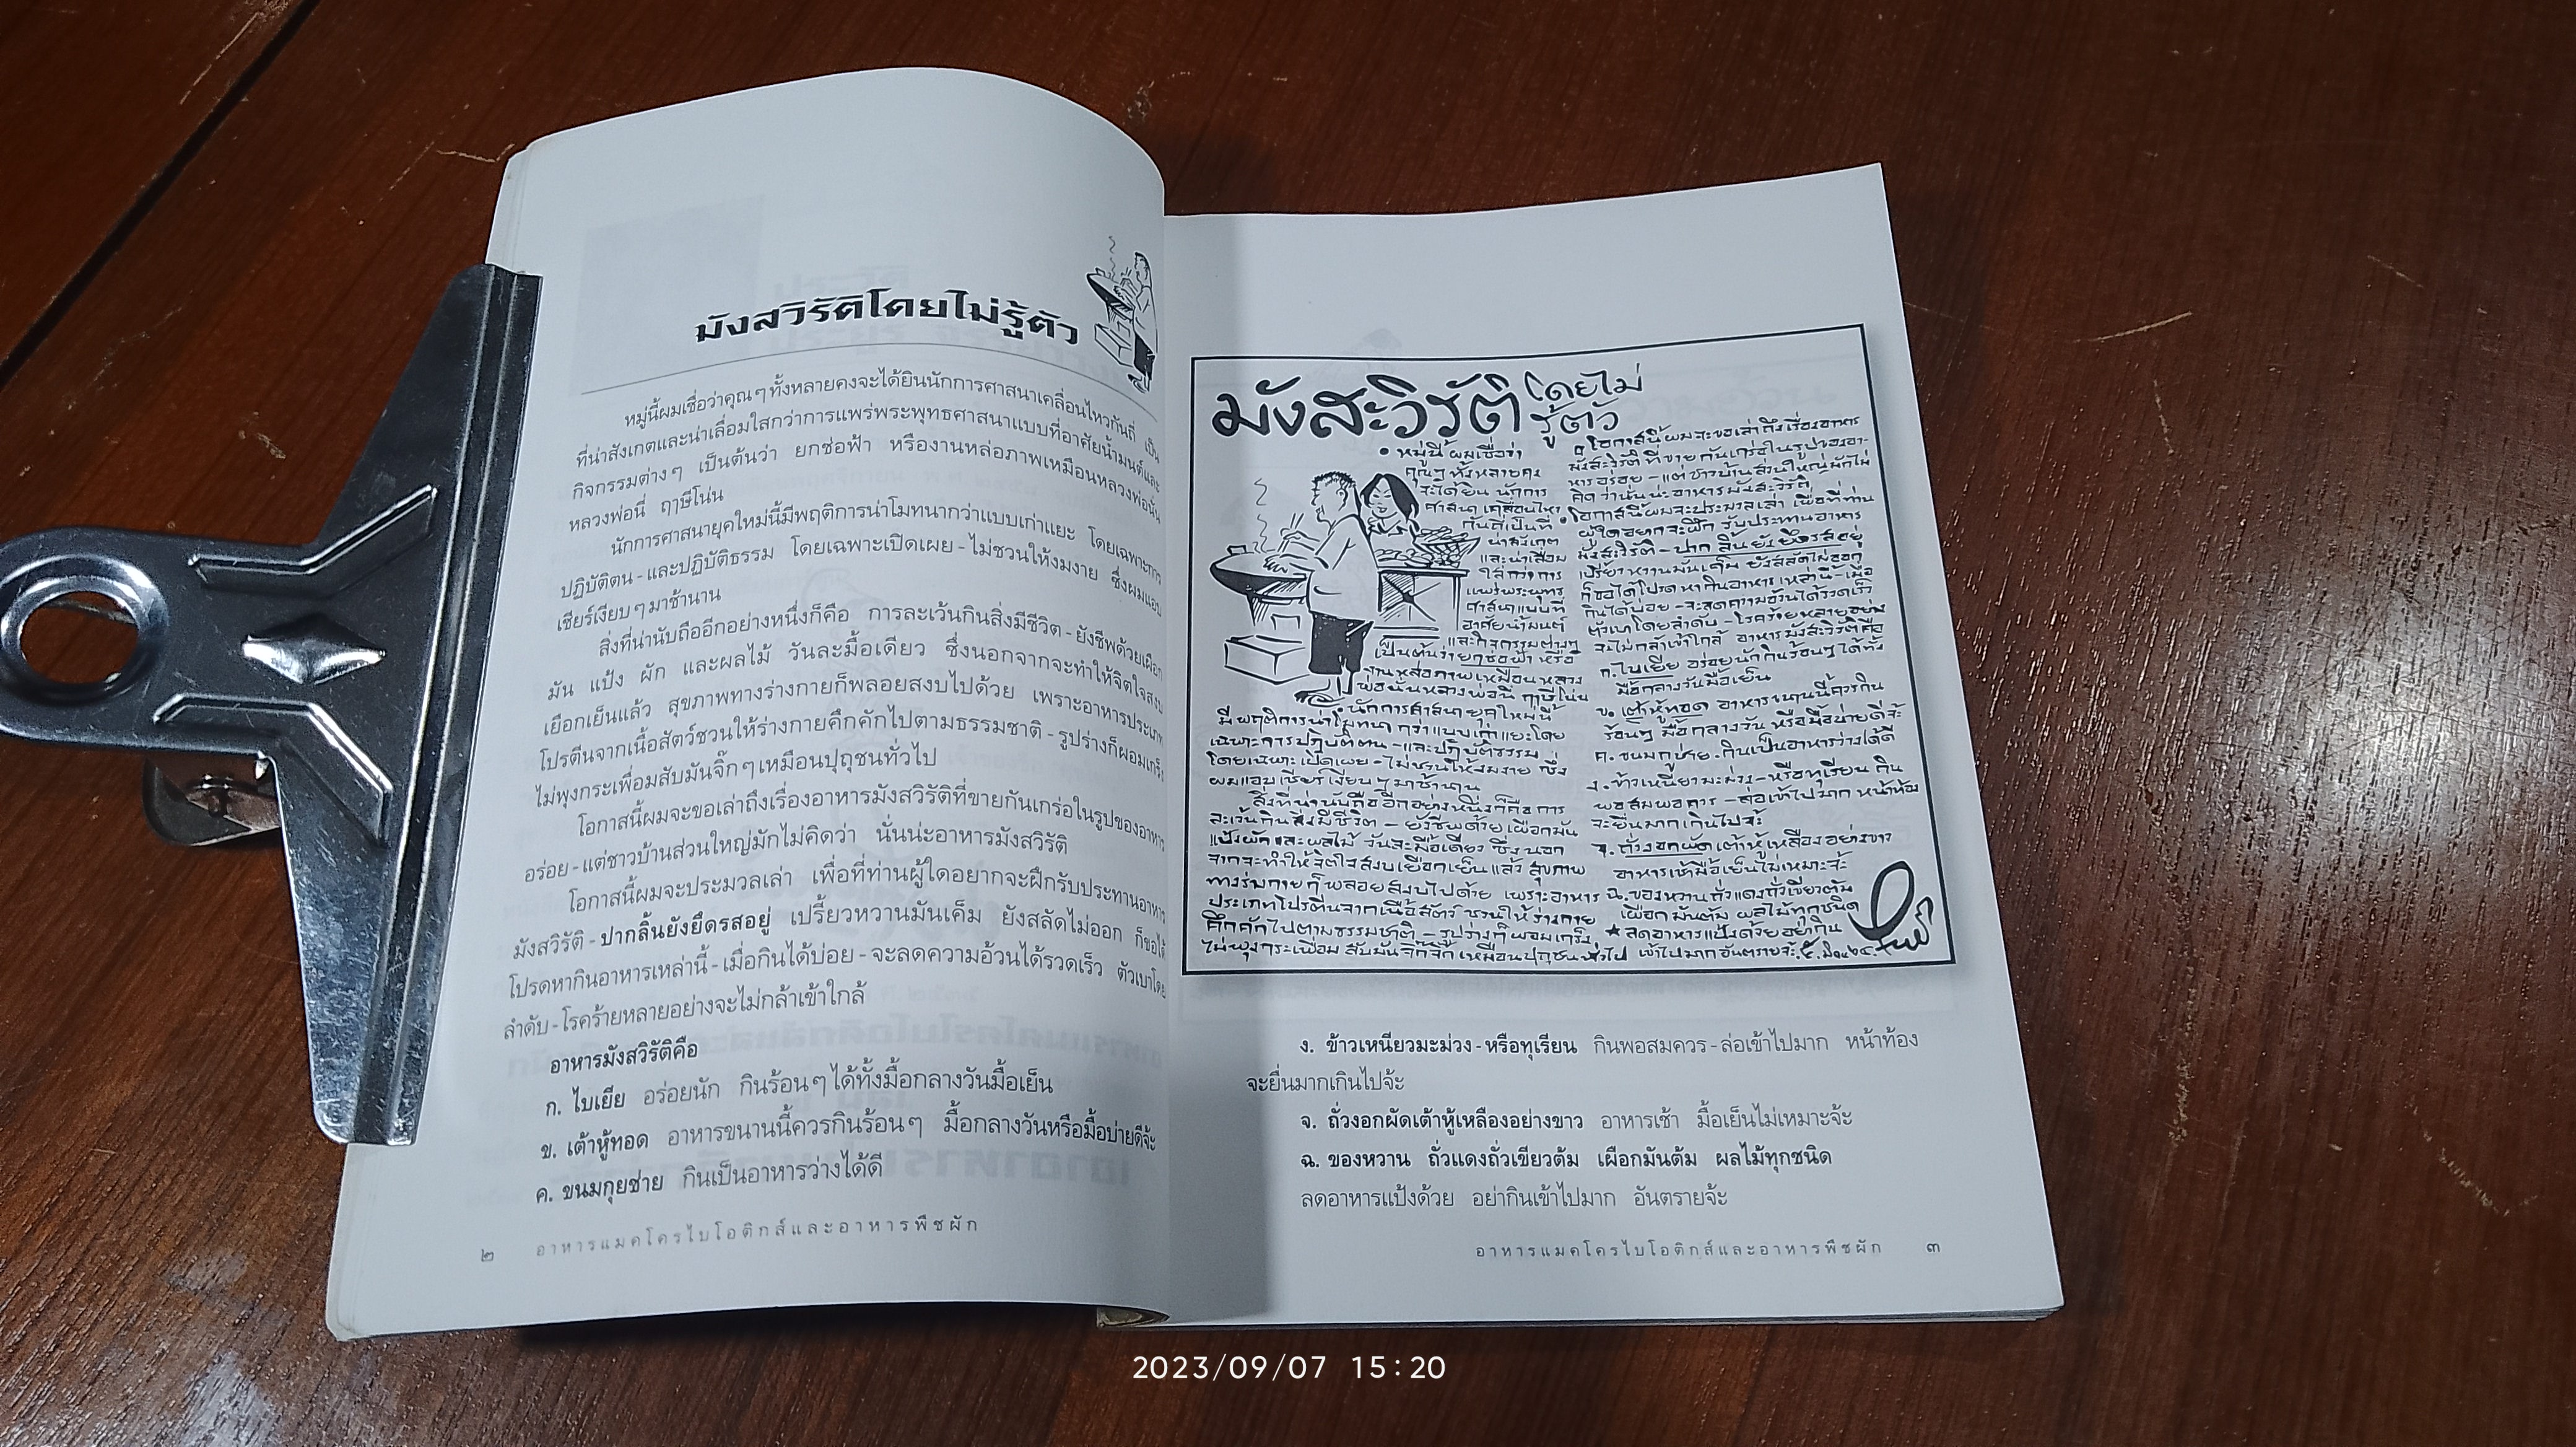 มังสวิรัติโดยไม่รู้ตัว
หมู่นี้ผมเชื่อว่าคุณๆ ทั้งหลายคงจะได้ยินนักการศาสนาเคลื่อนไหวกันถี่ เป็น
ที่น่าสังเกตและน่าเลื่อมใสกว่าการแพร่พระพุทธศาสนาแบบที่อาศัยน้ำมนต์และ
กิจกรรมต่างๆ เป็นต้นว่า ยกช่อฟ้า หรืองานหล่อภาพเหมือนหลวงพ่อนั่น
หลวงพ่อนี่ ฤาษีโน่น
นักการศาสนายุคใหม่นี้มีพฤติการน่าโมทนากว่าแบบเก่าแยะ โดยเฉพาะการ
ปฏิบัติตน - และปฏิบัติธรรม โดยเฉพาะเปิดเผย - ไม่ชวนให้งมงาย ซึ่งผมแอบ
เชียร์เงียบๆ มาช้านาน
สิ่งที่น่านับถืออีกอย่างหนึ่งก็คือ การละเว้นกินสิ่งมีชีวิต - ยังชีพด้วยเผือก
มัน แป้ง ผัก และผลไม้ วันละมื้อเดียว ซึ่งนอกจากจะทำให้จิตใจสงบ
เยือกเย็นแล้ว สุขภาพทางร่างกายก็พลอยสงบไปด้วย เพราะอาหารประเภท
โปรตีนจากเนื้อสัตว์ชวนให้ร่างกายคึกคักไปตามธรรมชาติ - รูปร่างก็ผอมเกร็ง
ไม่พุงกระเพื่อมสับมันจิ๊กๆ เหมือนปุถุชนทั่วไป
โอกาสนี้ผมจะขอเล่าถึงเรื่องอาหารมังสวิรัติที่ขายกันเกร่อในรูปของอาหาร
อร่อย - แต่ชาวบ้านส่วนใหญ่มักไม่คิดว่า นั่นน่ะอาหารมังสวิรัติ
โอกาสนี้ผมจะประมวลเล่า เพื่อที่ท่านผู้ใดอยากจะฝึกรับประทานอาหาร
มังสวิรัติ - ปากลิ้นยังยึดรสอยู่ เปรี้ยวหวานมันเค็ม ยังสลัดไม่ออก ก็ขอได้
โปรดหากินอาหารเหล่านี้ - เมื่อกินได้บ่อย - จะลดความอ้วนได้รวดเร็ว ตัวเบาโดย
ลำดับ - โรคร้ายหลายอย่างจะไม่กล้าเข้าใกล้
อาหารมังสวิรัติคือ
ก. ไบเยีย อร่อยนัก กินร้อนๆ ได้ทั้งมื้อกลางวันมื้อเย็น
ข. เต้าหู้ทอด อาหารขนานนี้ควรกินร้อนๆ มื้อกลางวันหรือมื้อบ่ายดีจ้ะ
ค. ขนมกุยช่าย กินเป็นอาหารว่างได้ดี
๒ อาหารแมคโครไบโอติกส์และอาหารพืชผัก
มังสะวิรัติ โดยไม่
รู้ตัว
• หมู่นี้ ผมเชื่อว่า
คุณๆ ทั้งหลายคง
จะได้ยิน นักการ
ศาสนา เคลื่อนไหว
กันถี่เป็นที่
น่าสังเกต
และน่าเลื่อม
ใส กว่าการ
แพร่พระพุทธ
ศาสนาแบบที่
อาศัยน้ำมนต์
และกิจกรรมต่างๆ
เป็นต้นว่ายกช่อฟ้า หรือ
งานหล่อภาพเหมือนหลวง
พ่อนั้นหลวงพ่อนี้ ฤาษีโน่น
• นักการศาสนายุคใหม่นี้
มีพฤติการน่าโมทนา กว่าแบบเก่าแยะโดย
เฉพาะการปฏิบัติตน - และปฏิบัติธรรม
โดยเฉพาะเปิดเผย - ไม่ชวนให้งมงาย ซึ่ง
ผมแอบเชียร์เงียบๆ มาช้านาน
สิ่งที่น่านับถืออีกอย่างหนึ่งก็คือ การ
ละเว้นกินสิ่งมีชีวิต - ยังชีพด้วยเผือกมัน
แป้งผักและผลไม้ วันละมื้อเดียว ซึ่งนอก
จากจะทำให้จิตใจสงบเยือกเย็นแล้ว สุขภาพ
ทางร่างกายก็พลอยสงบไปด้วย เพราะอาหาร
ประเภทโปรตีนจากเนื้อสัตว์ ชวนให้ร่างกาย
คึกคักไปตามธรรมชาติ - รูปร่างก็ผอมเกร็ง
ไม่พุงกระเพื่อม สับมันจิ๊กจิ๊ก เหมือนปุถุชนทั่วไป
โอกาสนี้ผมจะขอเล่าถึงเรื่องอาหาร
มังสะวิรัติที่ขายกันเกร่อในรูปของอา-
หารอร่อย - แต่ชาวบ้านส่วนใหญ่มักไม่
คิดว่านั่นน่ะอาหารมังสะวิรัติ
• โอกาสนี้ผมจะประมวลเล่า เพื่อที่ท่าน
ผู้ใดอยากจะฝึกรับประทานอาหาร
มังสะวิรัติ - ปากลิ้นยังยึดรสอยู่
เปรี้ยวหวานมันเค็ม ยังสลัดไม่ออก
ก็ขอได้โปรดหากินอาหารเหล่านี้ - เมื่อ
กินได้บ่อย - จะลดความอ้วนได้รวดเร็ว
ตัวเบาโดยลำดับ - โรคร้ายหลายอย่าง
จะไม่กล้าเข้าใกล้ อาหารมังสะวิรัติคือ
ก. ไบเยีย อร่อยนักกินร้อนๆ ได้ทั้ง
มื้อกลางวันมื้อเย็น
ข. เต้าหู้ทอด อาหารขนานนี้ควรกิน
ร้อนๆ มื้อกลางวัน หรือมื้อบ่ายดีจ้ะ
ค. ขนมกูช่าย. กินเป็นอาหารว่างได้ดี
ง. ข้าวเหนียวมะม่วง - หรือทุเรียน กิน
พอสมควร - ล่อเข้าไปมาก หน้าท้อง
จะยื่นมากเกินไปจ้ะ
จ. ถั่วงอกผัดเต้าหู้เหลืองอย่างขาว
อาหารเช้ามื้อเย็นไม่เหมาะจ้ะ
ฉ. ของหวาน ถั่วแดงถั่วเขียวต้ม
เผือกมันต้ม ผลไม้ทุกชนิด
★ ลดอาหารแป้งด้วยอย่ากิน
เข้าไปมากอันตรายจ้ะ
ง. ข้าวเหนียวมะม่วง - หรือทุเรียน กินพอสมควร - ล่อเข้าไปมาก หน้าท้อง
จะยื่นมากเกินไปจ้ะ
จ. ถั่วงอกผัดเต้าหู้เหลืองอย่างขาว อาหารเช้า มื้อเย็นไม่เหมาะจ้ะ
ฉ. ของหวาน ถั่วแดงถั่วเขียวต้ม เผือกมันต้ม ผลไม้ทุกชนิด
ลดอาหารแป้งด้วย อย่ากินเข้าไปมาก อันตรายจ้ะ
อาหารแมคโครไบโอติกส์และอาหารพืชผัก ๓
2023/09/07 15:20